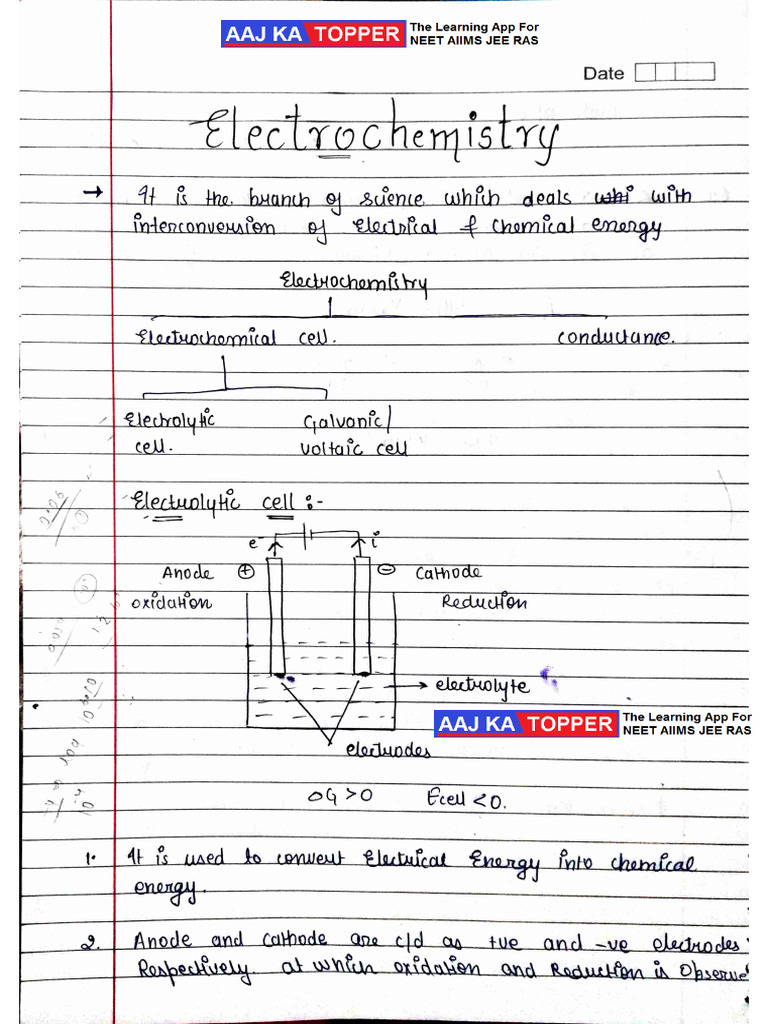 AAJ KA TOPPER The Learning App For
NEET AIIMS JEE RAS
Date
Electrochemistry
→ It is the branch of science which deals whi with
interconversion of Electrical & Chemical energy
Electrochemistry
Electrochemical cell. conductance.
Electrolytic Galvanic/
cell. Voltaic cell
Electrolytic cell :-
e⁻ i
Anode ⊕ ⊖ Cathode
oxidation Reduction
→ electrolyte
AAJ KA TOPPER The Learning App For
NEET AIIMS JEE RAS
electrodes
ΔG > 0 Ecell < 0.
1. It is used to convert Electrical Energy into chemical
energy.
2. Anode and Cathode are c/d as +ve and -ve electrodes
Respectively. at which oxidation and Reduction is Observe